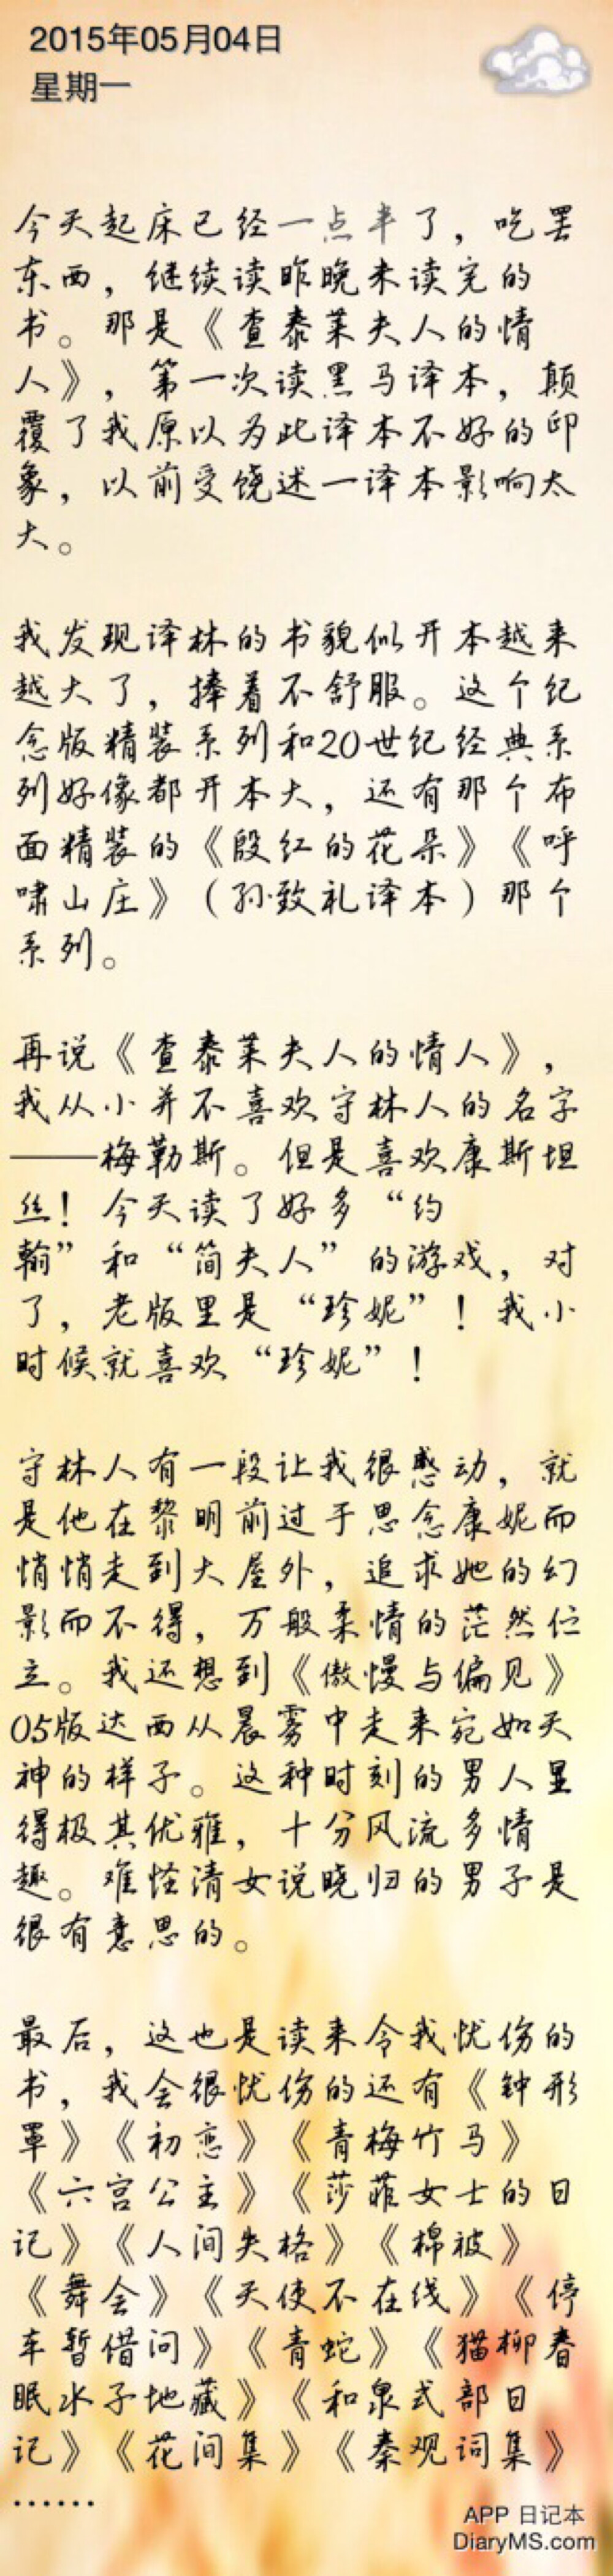 2015年05月04日
星期一
今天起床已经一点半了，吃罢
东西，继续读昨晚未读完的
书。那是《查泰莱夫人的情
人》，第一次读黑马译本，颠
覆了我原以为此译本不好的印
象，以前受饶述一译本影响太
大。
我发现译林的书貌似开本越来
越大了，捧着不舒服。这个纪
念版精装系列和20世纪经典系
列好像都开本大，还有那个布
面精装的《殷红的花朵》《呼
啸山庄》（孙致礼译本）那个
系列。
再说《查泰莱夫人的情人》，
我从小并不喜欢守林人的名字
——梅勒斯。但是喜欢康斯坦
丝！今天读了好多“约
翰”和“简夫人”的游戏，对
了，老版里是“珍妮”！我小
时候就喜欢“珍妮”！
守林人有一段让我很感动，就
是他在黎明前过于思念康妮而
悄悄走到大屋外，追求她的幻
影而不得，万般柔情的茫然伫
立。我还想到《傲慢与偏见》
05版达西从晨雾中走来宛如天
神的样子。这种时刻的男人显
得极其优雅，十分风流多情
趣。难怪清女说晓归的男子是
很有意思的。
最后，这也是读来令我忧伤的
书，我会很忧伤的还有《钟形
罩》《初恋》《青梅竹马》
《六宫公主》《莎菲女士的日
记》《人间失格》《棉被》
《舞会》《天使不在线》《停
车暂借问》《青蛇》《猫柳春
眠水子地藏》《和泉式部日
记》《花间集》《秦观词集》
……
APP 日记本
DiaryMS.com